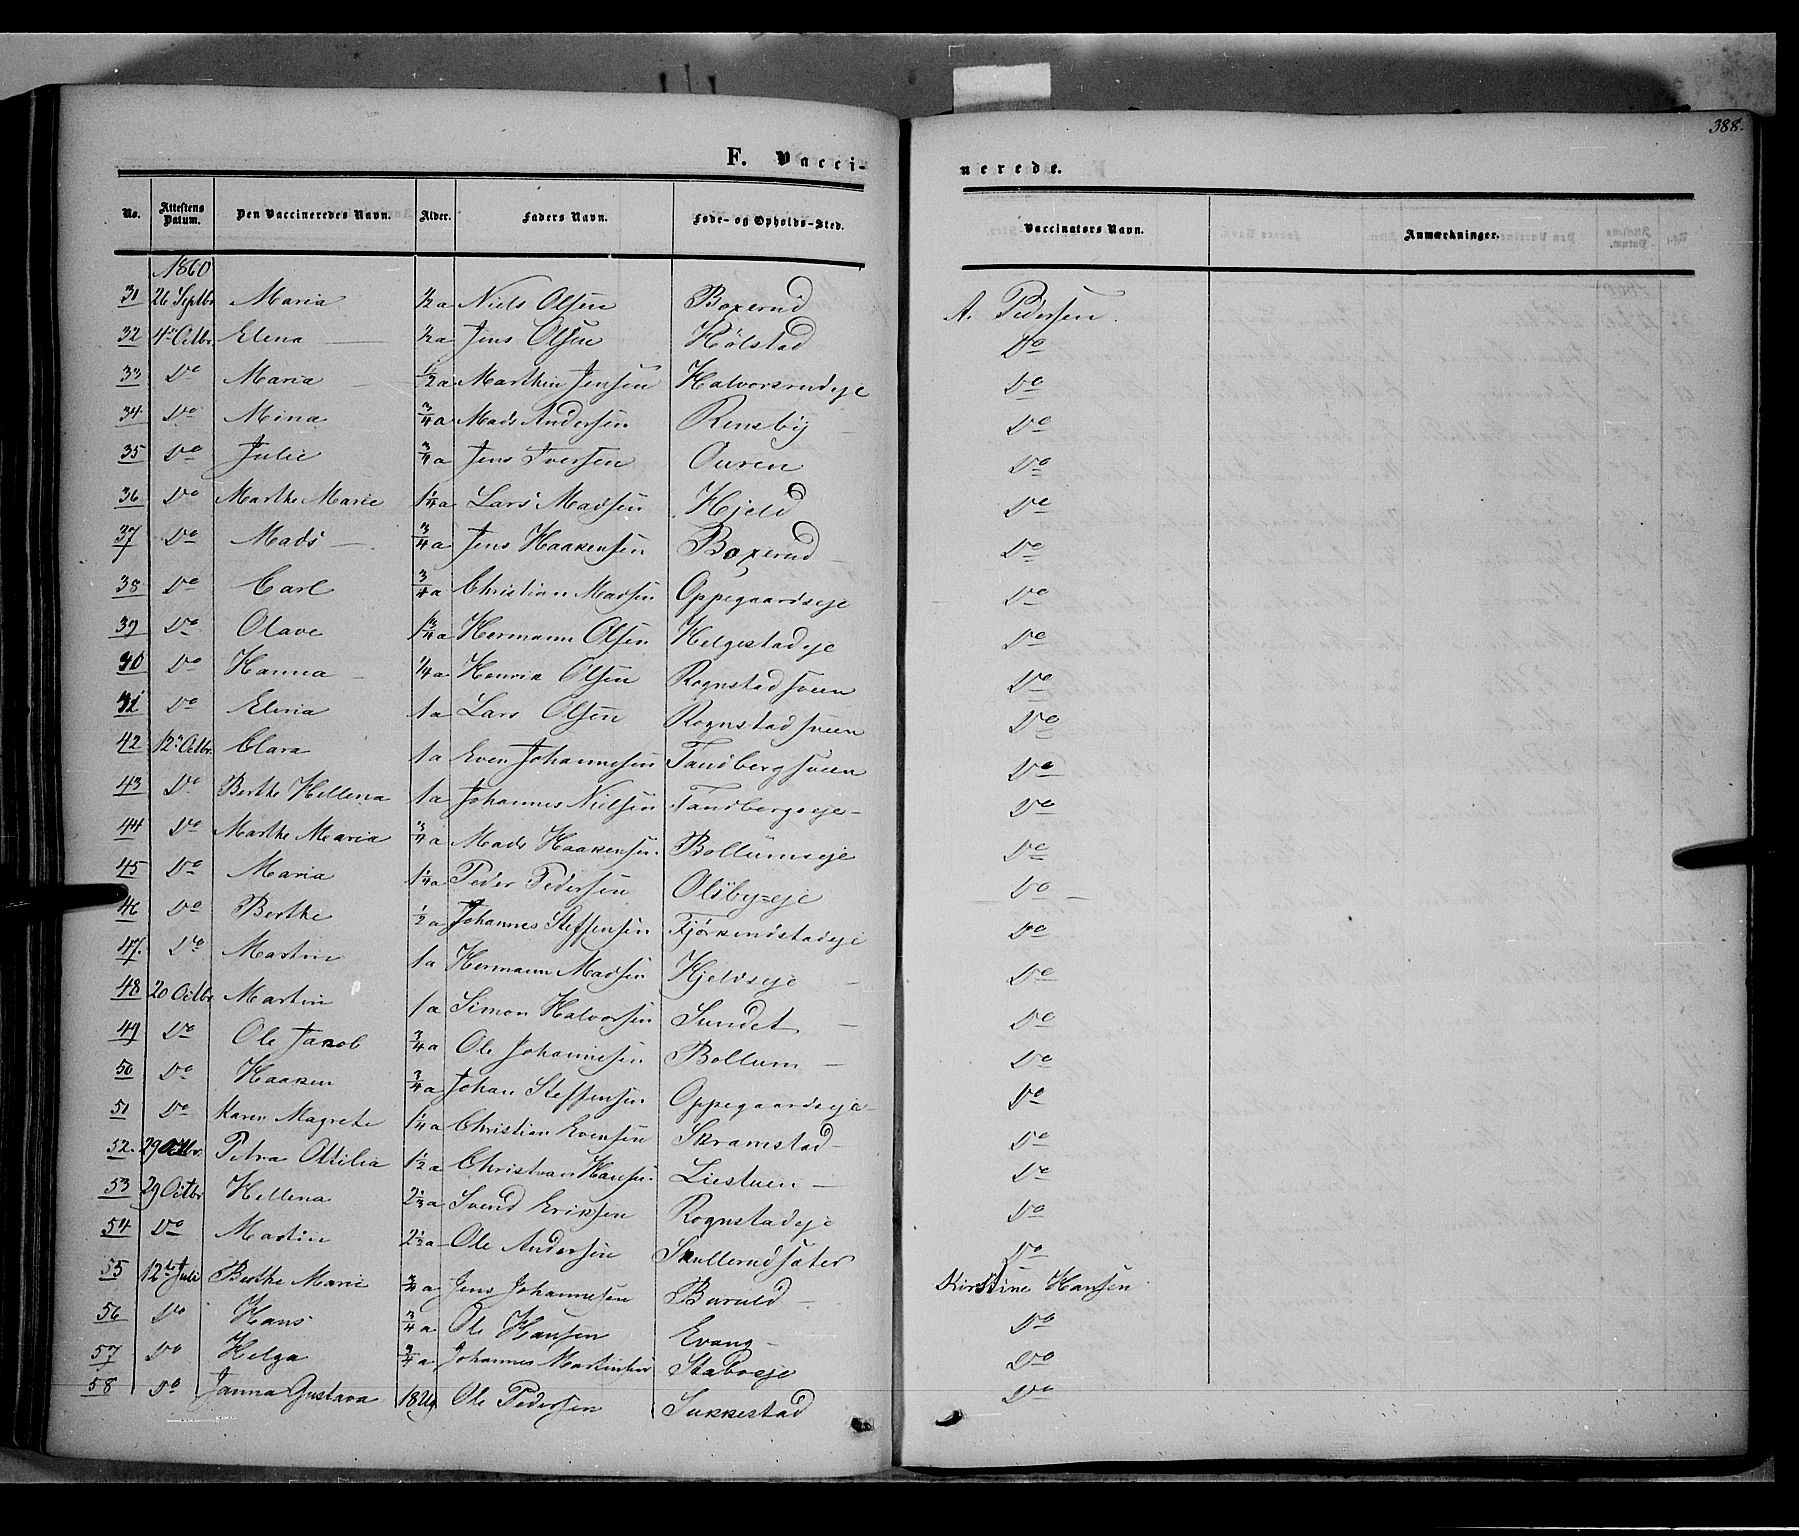 388.
F. Vacci-
nerede.
No. Attestens Datum. Den Vaccineredes Navn. Alder. Faders Navn. Føde- og Opholds-Sted. Vaccinators Navn. Anmærkninger.
1860
31 26 Septbr Maria ½ a Niels Olsen Boxerud A. Pedersen.
32 4de Octbr Elena ½ a Jens Olsen Hølstad Do
33 Do Maria ½ a Marthin Jensen Halvorsrudeje Do
34 Do Mina ¾ a Mads Andersen Rensby Do
35 Do Julie ¾ a Jens Iversen Ouren Do
36 Do Marthe Marie 1¼ a Lars Madsen Hjeld Do
37 Do Mads ¾ a Jens Haakensen Boxerud Do
38 Do Carl ¾ a Christian Madsen Oppegaardseje Do
39 Do Olave 1¾ a Hermann Olsen Helgestadeje Do
40 Do Hanna ¼ a Henrik Olsen Rognstadsveen Do
41 Do Elena 1 a Lars Olsen Rognstadsveen Do
42 12te Octbr Clara 1 a Even Johannesen Tandbergsveen Do
43 Do Berthe Hellena 1 a Johannes Nielsen Tandbergseje Do
44 Do Marthe Maria ¾ a Mads Haakensen Bollumseje Do
45 Do Maria 1¼ a Peder Pedersen Olsbyeje Do
46 Do Berthe ½ a Johannes Steffensen Fjørkenstadeje Do
47. Do Martin 1 a Hermann Madsen Hjeldseje Do
48 20 Octbr Martin 1 a Simon Halvorsen Sundet Do
49 Do Ole Jacob ¾ a Ole Johannesen Bollum Do
50 Do Haaken ¾ a Johan Steffensen Oppegaardseje Do
51 Do Karen Magrete 1¼ a Christian Evensen Skramstad Do
52. 29 Octbr. Petra Ottilia 1½ a Christian Hansen Liestuen Do
53 29 Octbr Hellena 2½ a Svend Eriksen Rognstadeje Do
54 Do Martin 2½ a Ole Andersen Skullerudsæter Do
55 12te Juli Berthe Marie ¾ a Jens Johannesen Baruld Kirstine Hansen
56 Do Hans ¾ a Ole Hansen Evang Do
57 Do Helga ¾ a Johannes Martinsen Staboeje Do
58 Do Janna Gustava Ole Pedersen Sukkestad Do